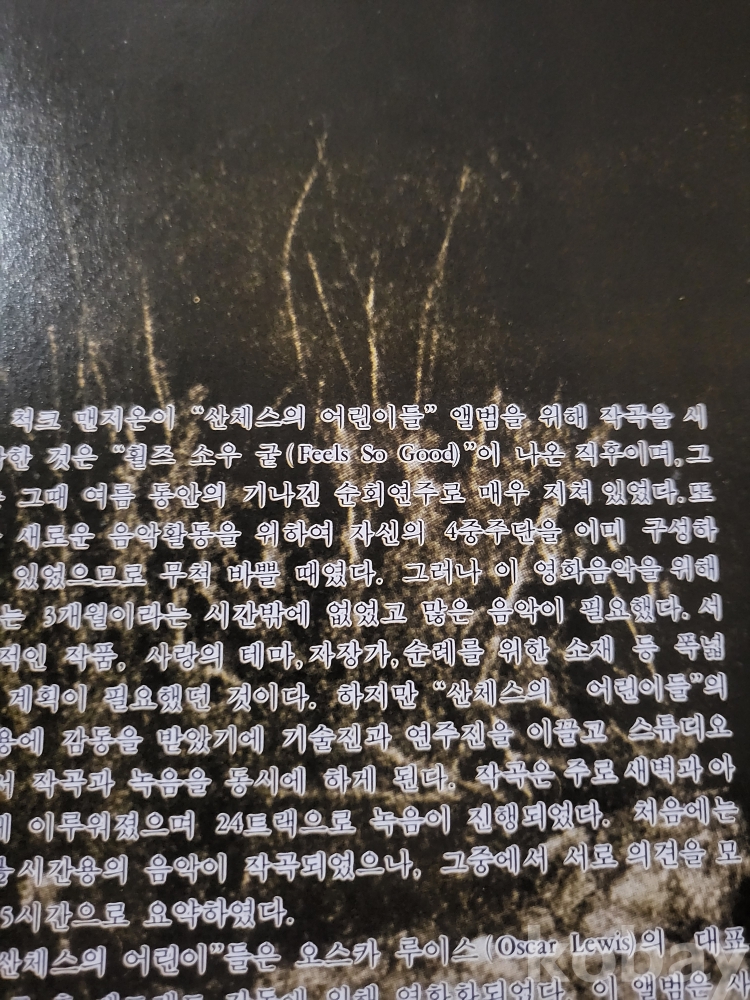 척크 맨지온이 “산체스의 어린이들” 앨범을 위해 작곡을 새
한 것은 “휠즈 소우 굳(Feels So Good)”이 나온 직후이며,그
그때 여름 동안의 기나긴 순회연주로 매우 지쳐 있었다.또
새로운 음악활동을 위하여 자신의 4중주단을 이미 구성하
있었으므로 무척 바쁠 때였다. 그러나 이 영화음악을 위해
는 3개월이라는 시간밖에 없었고 많은 음악이 필요했다. 서
적인 작품, 사랑의 테마,자장가,순례를 위한 소재 등 폭넓
계획이 필요했던 것이다. 하지만 “산체스의 어린이들”의
용에 감동을 받았기에 기술진과 연주진을 이끌고 스튜디오
서 작곡과 녹음을 동시에 하게 된다. 작곡은 주로 새벽과 아
에 이루워졌으며 24트랙으로 녹음이 진행되었다. 처음에는
시간용의 음악이 작곡되었으나, 그중에서 서로 의견을 모
5시간으로 요약하였다.
산체스의 어린이”들은 오스카 루이스(Oscar Lewis)의 대표
영화화되었다. 이 앨범은 시